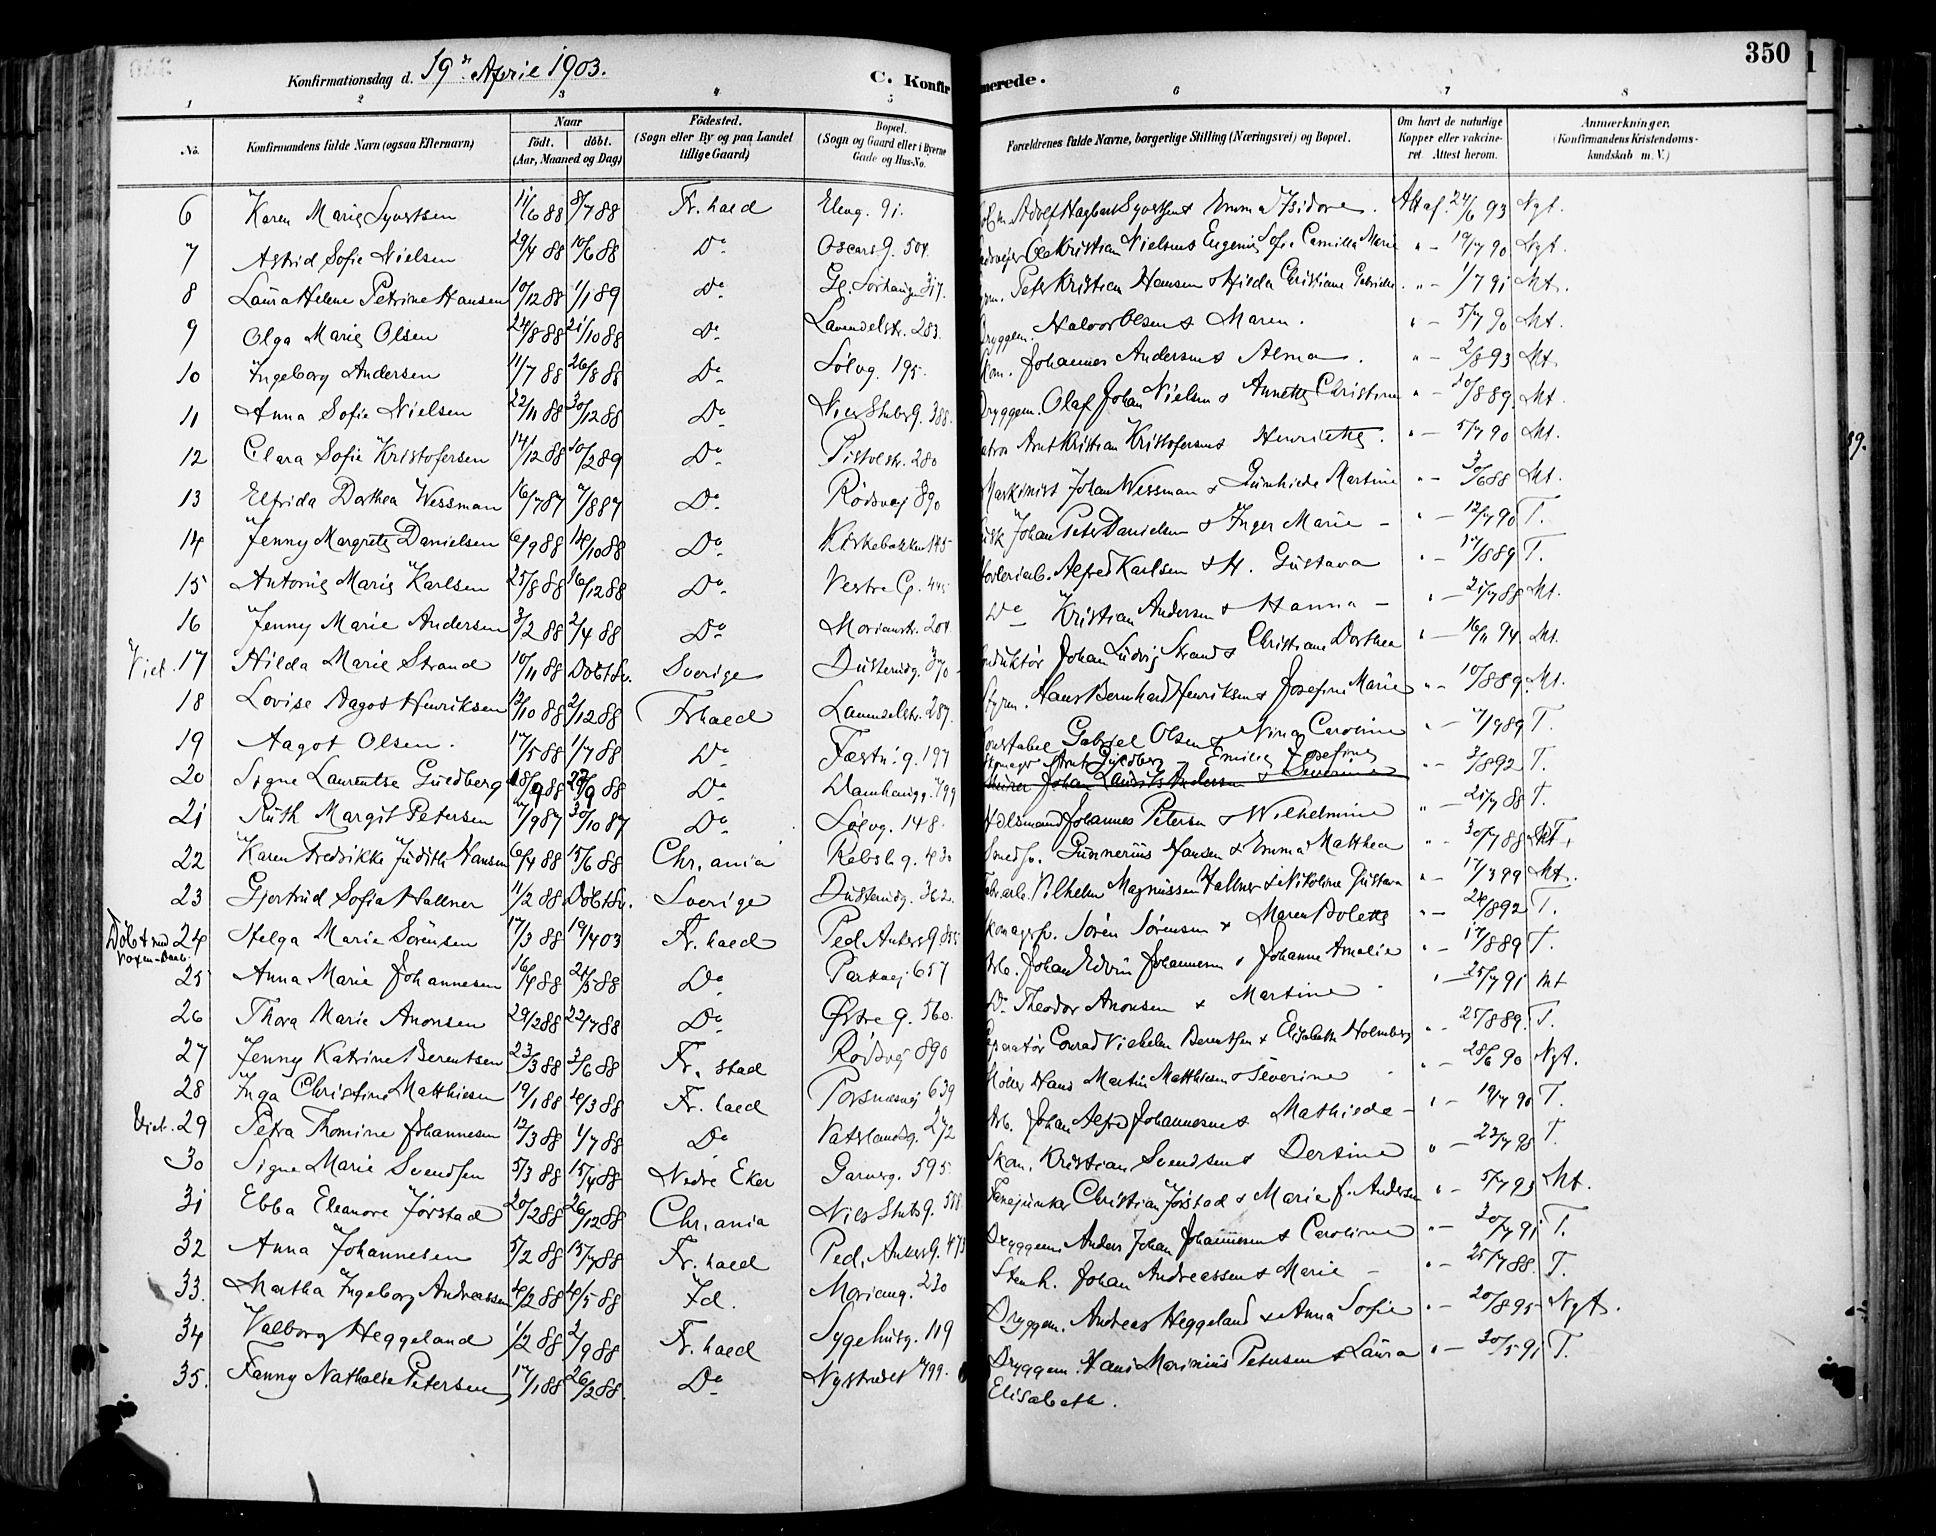 350
Konfirmationsdag d. 19de April 1903.
C. Konfirmerede.
1 2 3 4 5 6 7 8
No.
Konfirmandens fulde Navn (ogsaa Efternavn)
Naar
födt. döbt.
(Aar, Maaned og Dag)
Födested.
(Sogn eller By og paa Landet tillige Gaard)
Bopæl.
(Sogn og Gaard eller i Byerne Gade og Hus-No.
Forældrenes fulde Navne, borgerlige Stilling (Næringsvei) og Bopæl.
Om havt de naturlige Kopper eller vakcineret. Attest herom.
Anmærkninger.
(Konfirmandens Kristendomskundskab m. V.)
6 Karen Marie Syvertsen 11/6 88 8/7 88 Fr.hald Elvug. 91. Adolf Hagbart Syvertsen & Emma Isidore. Attaf. 24/6 93 Ngt.
7 Astrid Sofie Nielsen 29/4 88 10/6 88 Do Oscarsg. 504. Ole Kristian Nielsen & Eugenie Sofie Camilla Marie " - 19/7 90 Ngt.
8 Laura Helene Petrine Hansen 10/12 88 1/1 89 Do Gl. 317. Peter Kristian Hansen & Hilda Christiane Gabrielle " - 1/7 91 Mt.
9 Olga Marie Olsen 24/8 88 21/10 88 Do Lavendelstr. 283. Bryggem. Halvor Olsen & Maren. " - 5/7 90 Mt.
10 Ingeborg Andersen 11/7 88 26/8 88 Do Sølvg. 195. Johannes Andersen & Alma. " - 2/8 93 Mt.
11 Anna Sofie Nielsen 22/11 88 30/12 88 Do Niels Stubsg. 388. Bryggem. Olaf Johan Nielsen & Annette Christine " - 20/8 89. Mt.
12 Clara Sofie Kristofersen 14/12 88 10/2 89 Do Pistolstr. 280 Arnt Kristian Kristofersen & Henriette. " - 5/7 90 Mt.
13 Elfrida Dorthea Wessman 16/7 87 7/8 87 Do Rödsvej 890 Maskinist Johan Wessman & Gunhilda Martine " - 30/6 88 Mt.
14 Jenny Margrete Danielsen 6/9 88 14/10 88 Do Kirkebakken 145 Johan Peter Danielsen & Inger Marie - " - 12/7 90 T.
15 Antonie Marie Karlsen 25/8 88 16/12 88 Do Vestre G. 445 Alfred Karlsen & H. Gustava " - 17/8 89 T.
16 Jenny Marie Andersen 3/2 88 2/4 88 Do Morianstr. 204 Do Kristian Andersen & Hanna - " - 21/7 88 Mt.
17 Hilda Marie Strand 10/11 88 Döbt Sv. Sverige 370 Konduktör Johan Ludvig Strand & Christiane Dorthea " - 16/11 94 Mt.
18 Lovise Dagot Henriksen 12/10 88 2/12 88 Frhald Lavendelstr. 287. Styrm. Hans Bernhard Henriksen & Josefine Marie " - 10/8 89. Mt.
19 Aagot Olsen. 17/5 88 1/7 88 Do Fæstn.g. 197 Konstabel Gabriel Olsen & Nina Caroline " - 7/9 89 T.
20 Signe Laurentse Guldberg 18/9 88 88 Do Damhaugg. 799 Arnt Guldberg & Emilie Josefine " - 3/8 92 T.
Johan Laurits Andersen & Severine
21 Ruth Margit Petersen 7/9 87 30/10 87 Do Sølvg. 148. Johannes Petersen & Wilhelmine " - 21/7 88 T.
22 Karen Fredrikke Judith Hansen 6/4 88 15/6 88 Chr.ania Rebslg. 430 Smedsv. Gunnerius Hansen & Emma Matthea " - 30/7 88 Mt.
23 Gjertrud Sofia Hallner 11/2 88 Döbt Sv. Sverige 362. Vilhelm Magnussen Hallner & Nikoline Gustava " - 17/3 99 Mt.
Döbt med Voxen-Daab. 24 Helga Marie Sörensen 17/3 88 19/4 03 Fr.hald Ped. Ankersg. 855 Sören Sörensen & Maren Bolette " - 24/8 92 T.
25 Anna Marie Johannesen 16/4 88 21/5 88 Do Parkvej. 657 Arb. Johan Edvin Johannesen & Johanne Amalie " - 17/8 89 T.
26 Thora Marie Anonsen 29/2 88 22/7 88 Do Østre g. 560. Do Theodor Anonsen & Martine " - 25/7 91 Mt
27 Jenny Katrine Berentsen 23/3 88 3/6 88 Fr. stad Rödsvej 890 Conrad Vilhelm Berentsen & Elisabeth Holmberg " - 25/8 89. T.
28 Inga Christine Matthiesen 19/1 88 4/3 88 Fr. hald Torsnæsvej 639 Möller Hans Martin Matthiesen & Severine " - 28/6 90 Ngt.
29 Petra Thomine Johannesen 12/3 88 1/7 88 Do Vaterlandsg. 272 Arb. Johan Alfred Johannesen & Mathilde - " - 19/7 90 T.
30 Signe Marie Svendsen 5/3 88 15/4 88 Nedre Eker Garverg. 595 Skom. Kristian Svendsen & Dorsine " - 23/7 98 T.
31 Ebba Eleanore Jørstad 20/2 88 26/12 88 Chr.ania Niels Stubsg. 588 Fanejunker Christian Jørstad & Marie f. Andersen " - 5/7 93 Mt.
32 Anna Johannesen 5/2 88 15/7 88 Fr. hald Ped. Ankersg. 473 Bryggem. Anders Johan Johannesen & Caroline " - 20/7 91 T.
33. Martha Ingeborg Andreassen 4/2 88 4/5 88 Id. Morieng. 230 Stenh. Johan Andreassen & Marie - " - 25/7 88. T.
34 Valborg Heggeland 1/2 88 2/9 88 Fr. hald Sygehusg. 119 Bryggem. Andreas Heggeland & Anna Sofie " - 20/8 95 Ngt.
35. Fanny Nathalie Petersen 17/1 88 26/2 88. Do Nystredet 799. Bryggem. Hans Marinius Petersen & Laura Elisabeth. " - 30/5 91 T.